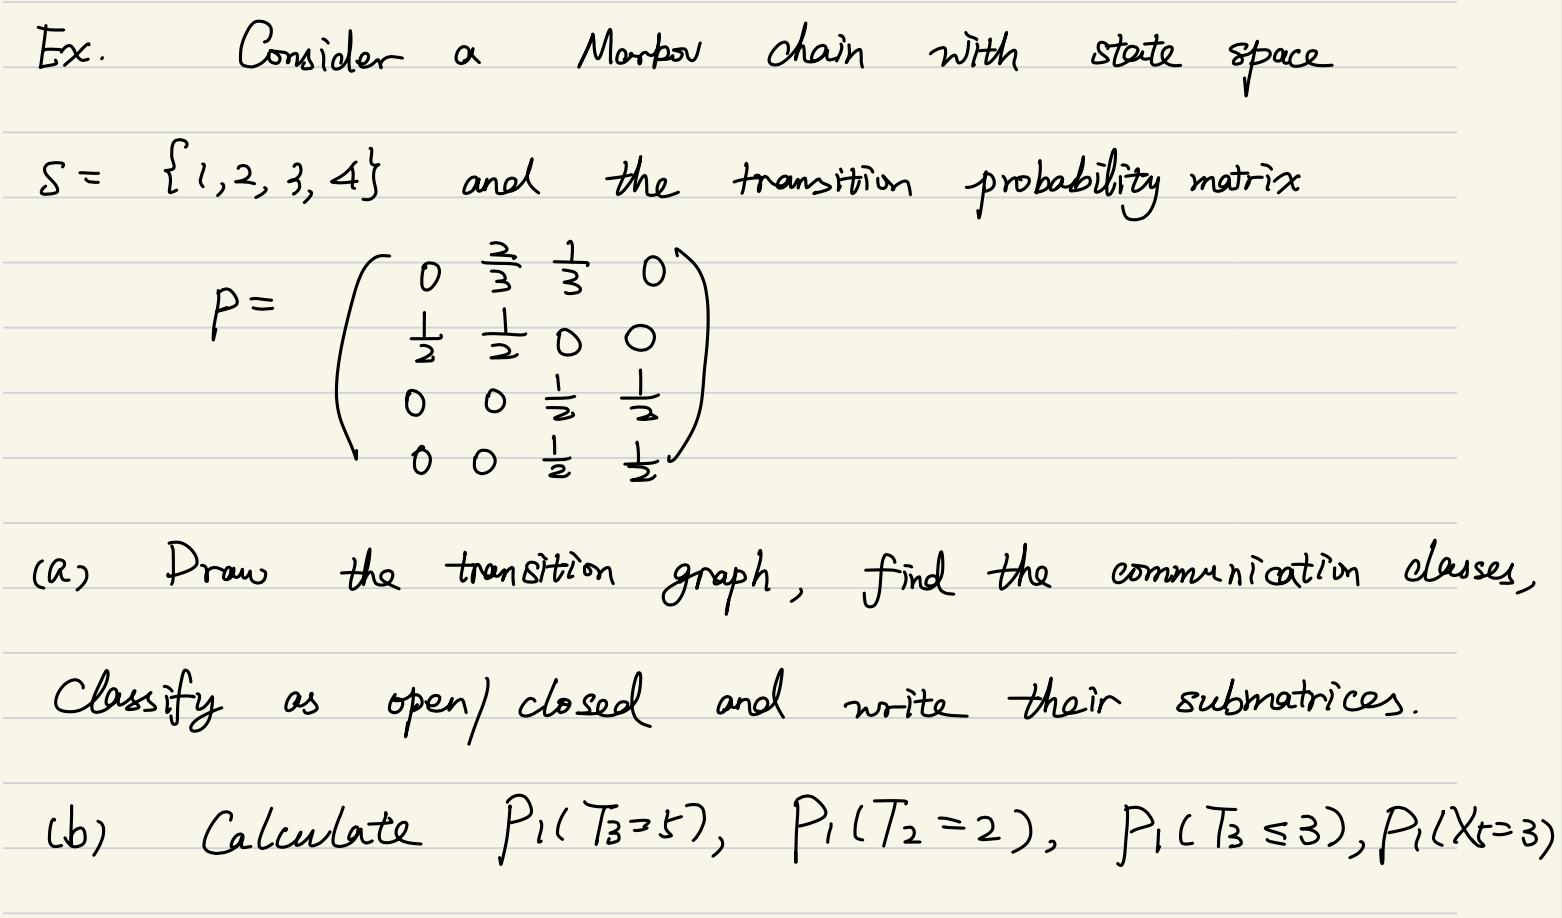 Ex. Consider a Markov chain with state space
S = {1, 2, 3, 4} and the transition probability matrix
P = ( 0 2/3 1/3 0
1/2 1/2 0 0
0 0 1/2 1/2
0 0 1/2 1/2 )
(a) Draw the transition graph, find the communication classes,
Classify as open/closed and write their submatrices.
(b) Calculate P₁(T₃=5), P₁(T₂=2), P₁(T₃≤3), P₁(X₅=3)